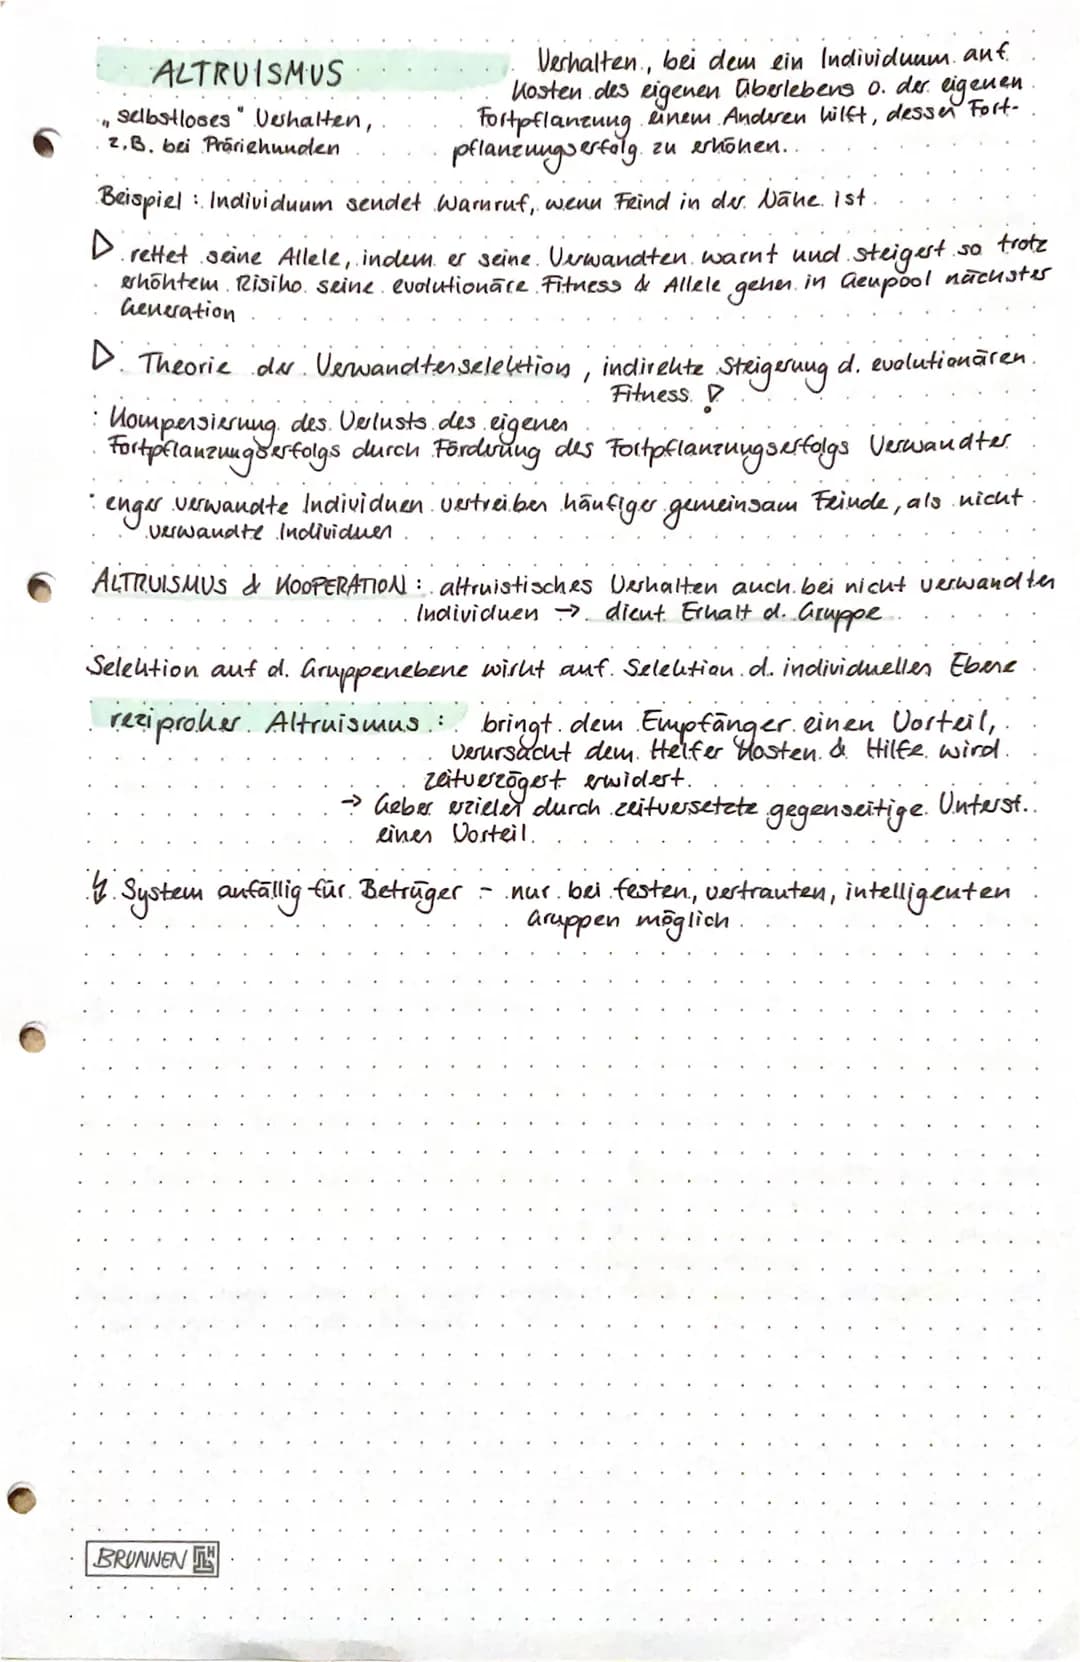 ALTRUISMUS
„selbstloses" Verhalten,
z.B. bei Präriehunden
Verhalten, bei dem ein Individuum auf
Kosten des eigenen Überlebens o. der eigenen
Fortpflanzung einem Anderen hilft, dessen Fort-
pflanzungserfolg zu erhöhen.
Beispiel: Individuum sendet Warnruf, wenn Feind in der Nähe ist.
▷ rettet seine Allele, indem er seine Verwandten warnt und steigert so trotz
erhöhtem Risiko seine evolutionäre Fitness & Allele gehen in Genpool nächster
Generation
▷ Theorie der Verwandtenselektion, indirekte Steigerung d. evolutionären
Fitness !
: Kompensierung des Verlusts des eigenen
Fortpflanzungserfolgs durch Förderung des Fortpflanzungserfolgs Verwandter
: enger verwandte Individuen vertreiben häufiger gemeinsam Feinde, als nicht
verwandte Individuen
ALTRUISMUS & KOOPERATION: altruistisches Verhalten auch bei nicht verwandten
Individuen → dient Erhalt d. Gruppe
Selektion auf d. Gruppenebene wirkt auf Selektion d. individuellen Ebene
reziproker Altruismus: bringt dem Empfänger einen Vorteil,
verursacht dem Helfer Kosten & Hilfe wird
zeitverzögert erwidert.
→ Geber erzielt durch zeitversetzte gegenseitige Unterst.
einen Vorteil.
↯ System anfällig für Betrüger - nur bei festen, vertrauten, intelligenten
Gruppen möglich
BRUNNEN